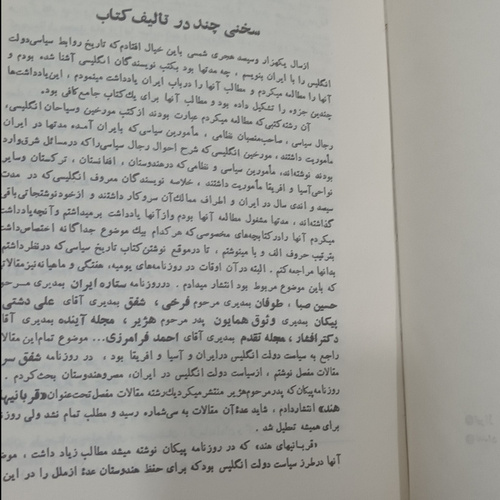 سخنی چند در تالیف کتاب
ازسال یکهزار وسیصد هجری شمسی باین خیال افتادم که تاریخ روابط سیاسی دولت
انگلیس را با ایران بنویسم ، چه مدتها بود بکتب نویسندگان انگلیسی آشنا شده بودم و
آنها را مطالعه میکردم و مطالب آنها را درباب ایران یادداشت مینمودم ، این یادداشت‌ها
چندین جزوه را تشکیل داده بود و مطالب آنها برای یك کتاب جامع کافی بود.
آن رشته کتبی که مطالعه میکردم عبارت بودند از کتب مورخین وسیاحان انگلیسی،
رجال سیاسی ، صاحبمنصبان نظامی ، مأمورین سیاسی که بایران آمده مدتها در ایران
مأموریت داشتند، مورخین انگلیسی که شرح احوال رجال سیاسی را که درمسائل شرق وارد
بودند نوشته‌اند، مأمورین سیاسی و نظامی که درهندوستان ، افغانستان ، ترکستان وسایر
نواحی آسیا و افریقا مأموریت داشتند ، خلاصه نویسندگان معروف انگلیسی که در مدت
سیصد و اندی سال در ایران و اطراف ممالك آن سروکار داشتند و ازخود نوشتجاتی باقی
گذاشته‌اند ، مدتها مشغول مطالعه آنها بودم واز آنها یادداشت برمیداشتم وآنچه یادداشت
میکردم آنها رادرکتابچه‌های مخصوصی که هرکدام بیك موضوع جداگانه اختصاص داشت
بترتیب حروف الف و با مینوشتم ، تا درموقع نوشتن کتاب تاریخ سیاسی که درنظر داشتم
بدانها مراجعه کنم . البته در آن اوقات در روزنامه‌های یومیه، هفتگی و ماهیانه نیز مقالاتی
که باین موضوع مربوط بود انتشار میدادم . درروزنامه ستاره ایران بمدیری مرحوم
حسین صبا ، طوفان بمدیری مرحوم فرخی ، شفق بمدیری آقای علی دشتی
پیکان بمدیری وثوق همایون پدر مرحوم هژیر ، مجله آینده بمدیری آقای
دکترافشار ، مجله تقدم بمدیری آقای احمد فرامرزی... موضوع تمام این مقالات
راجع به سیاست دولت انگلیس درایران و آسیا و افریقا بود ، در روزنامه شفق سرخ
مقالات مفصل نوشتم ، ازسیاست دولت انگلیس در ایران، مصر وهندوستان بحث کردم .
روزنامه پیکان که پدر مرحوم هژیر منتشر میکرد یك رشته مقالات مفصل تحت عنوان «قربانیهای
هند» انتشاردادم ، شاید عدهٔ آن مقالات به سی شماره رسید و مطلب تمام نشد ولی روزنامه
برای همیشه تعطیل شد .
«قربانیهای هند» که در روزنامه پیکان نوشته میشد مطالب زیاد داشت ،
آنها درطرز سیاست دولت انگلیس بود که برای حفظ هندوستان عدهٔ ازملل را در این